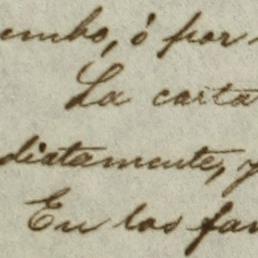 embo, ó por
La carta
diatamente, y
En los far